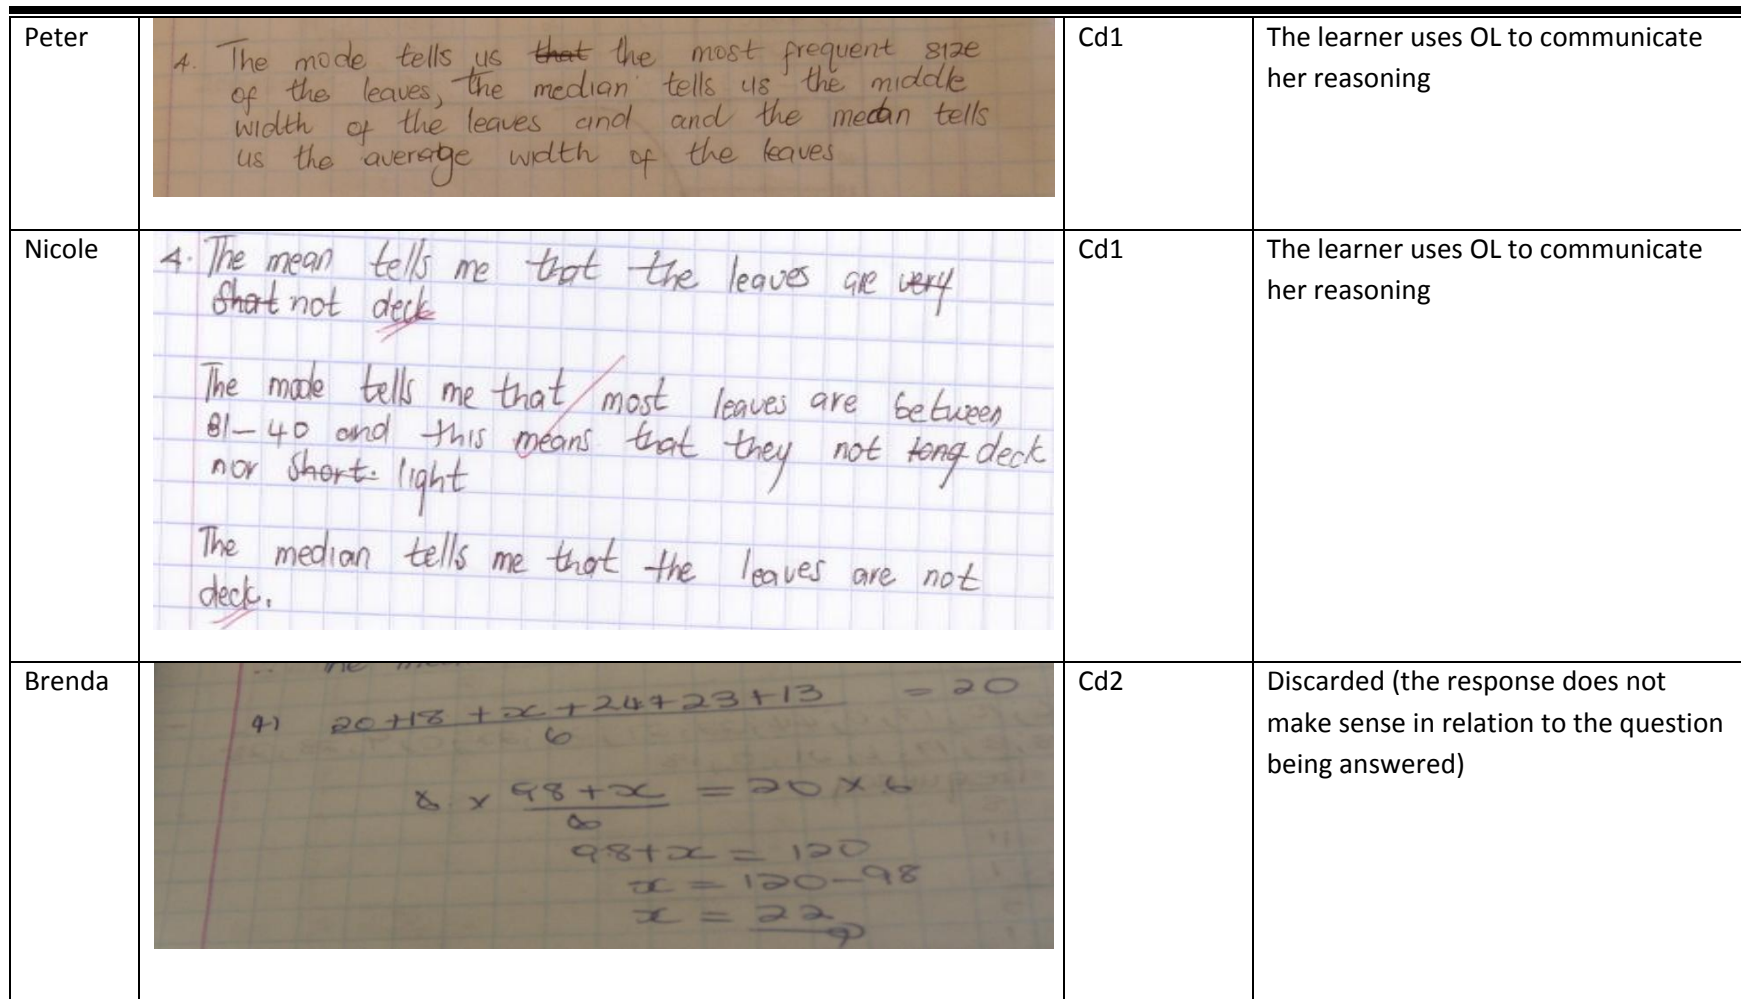 Peter
4. The mode tells us that the most frequent size
of the leaves, the median tells us the middle
width of the leaves and and the mean tells
us the average width of the leaves
Cd1
The learner uses OL to communicate
her reasoning
Nicole
4. The mean tells me that the leaves are very
Short not deck
The mode tells me that most leaves are between
31-40 and this means that they not long deck
nor short. light
The median tells me that the leaves are not
deck.
Cd1
The learner uses OL to communicate
her reasoning
Brenda
4) 20+18+x+24+23+13 = 20
6
6 x 98+x = 20x6
6
98+x = 120
x = 120-98
x = 22
Cd2
Discarded (the response does not
make sense in relation to the question
being answered)